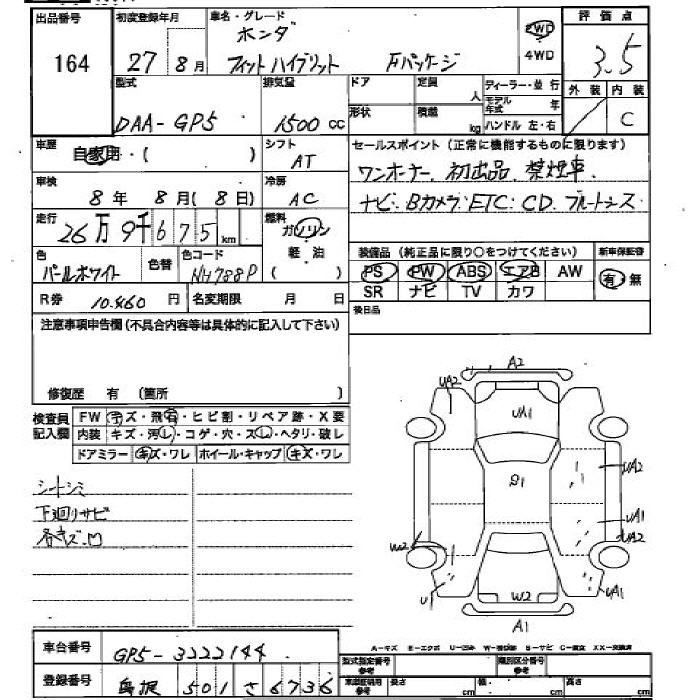 出品番号
164
初度登録年月
27年8月
車名・グレード
ホンダ
フィットハイブリット Fパッケージ
2WD
4WD
評価点
3.5
外装 内装
C
型式
DAA-GP5
排気量
1500 cc
ドア
定員
人
形状
積載
kg
ディーラー・並行
モデル年式 年
ハンドル 左・右
車歴
自家用・( )
シフト
AT
セールスポイント(正常に機能するものに限ります)
ワンオーナー. 初出品. 禁煙車.
ナビ.Bカメラ.ETC.CD.ブルートゥース
車検
8年 8月(8日)
冷房
AC
走行
26万9千675km
燃料
ガソリン
軽・油
( )
色
パールホワイト
色替
色コード
NH788P
装備品(純正品に限り○をつけてください)
新車保証書
PS PW ABS エアB AW
SR ナビ TV カワ
有・無
R券 10.460円
名変期限 月 日
後日品
注意事項申告欄(不具合内容等は具体的に記入して下さい)
修復歴 有 (箇所 )
検査員記入欄
FW キズ・飛石・ヒビ割・リペア跡・X要
内装 キズ・汚レ・コゲ・穴・スレ・ヘタリ・破レ
ドアミラー キズ・ワレ ホイール・キャップ キズ・ワレ
シートシミ
下廻りサビ
各キズ.凹
A2
UA2
UA1
S1
UA2
UA1
UA2
W2
U1
W2
UA1
A1
車台番号
GP5-3222144
登録番号
島根 501 さ 6736
A-キズ E-エクボ U-凹み W-補修跡 S-サビ C-腐食 XX-交換済
型式指定番号
参考
類別区分番号
参考
車庫証明用
参考
長さ cm
幅 cm
高さ cm